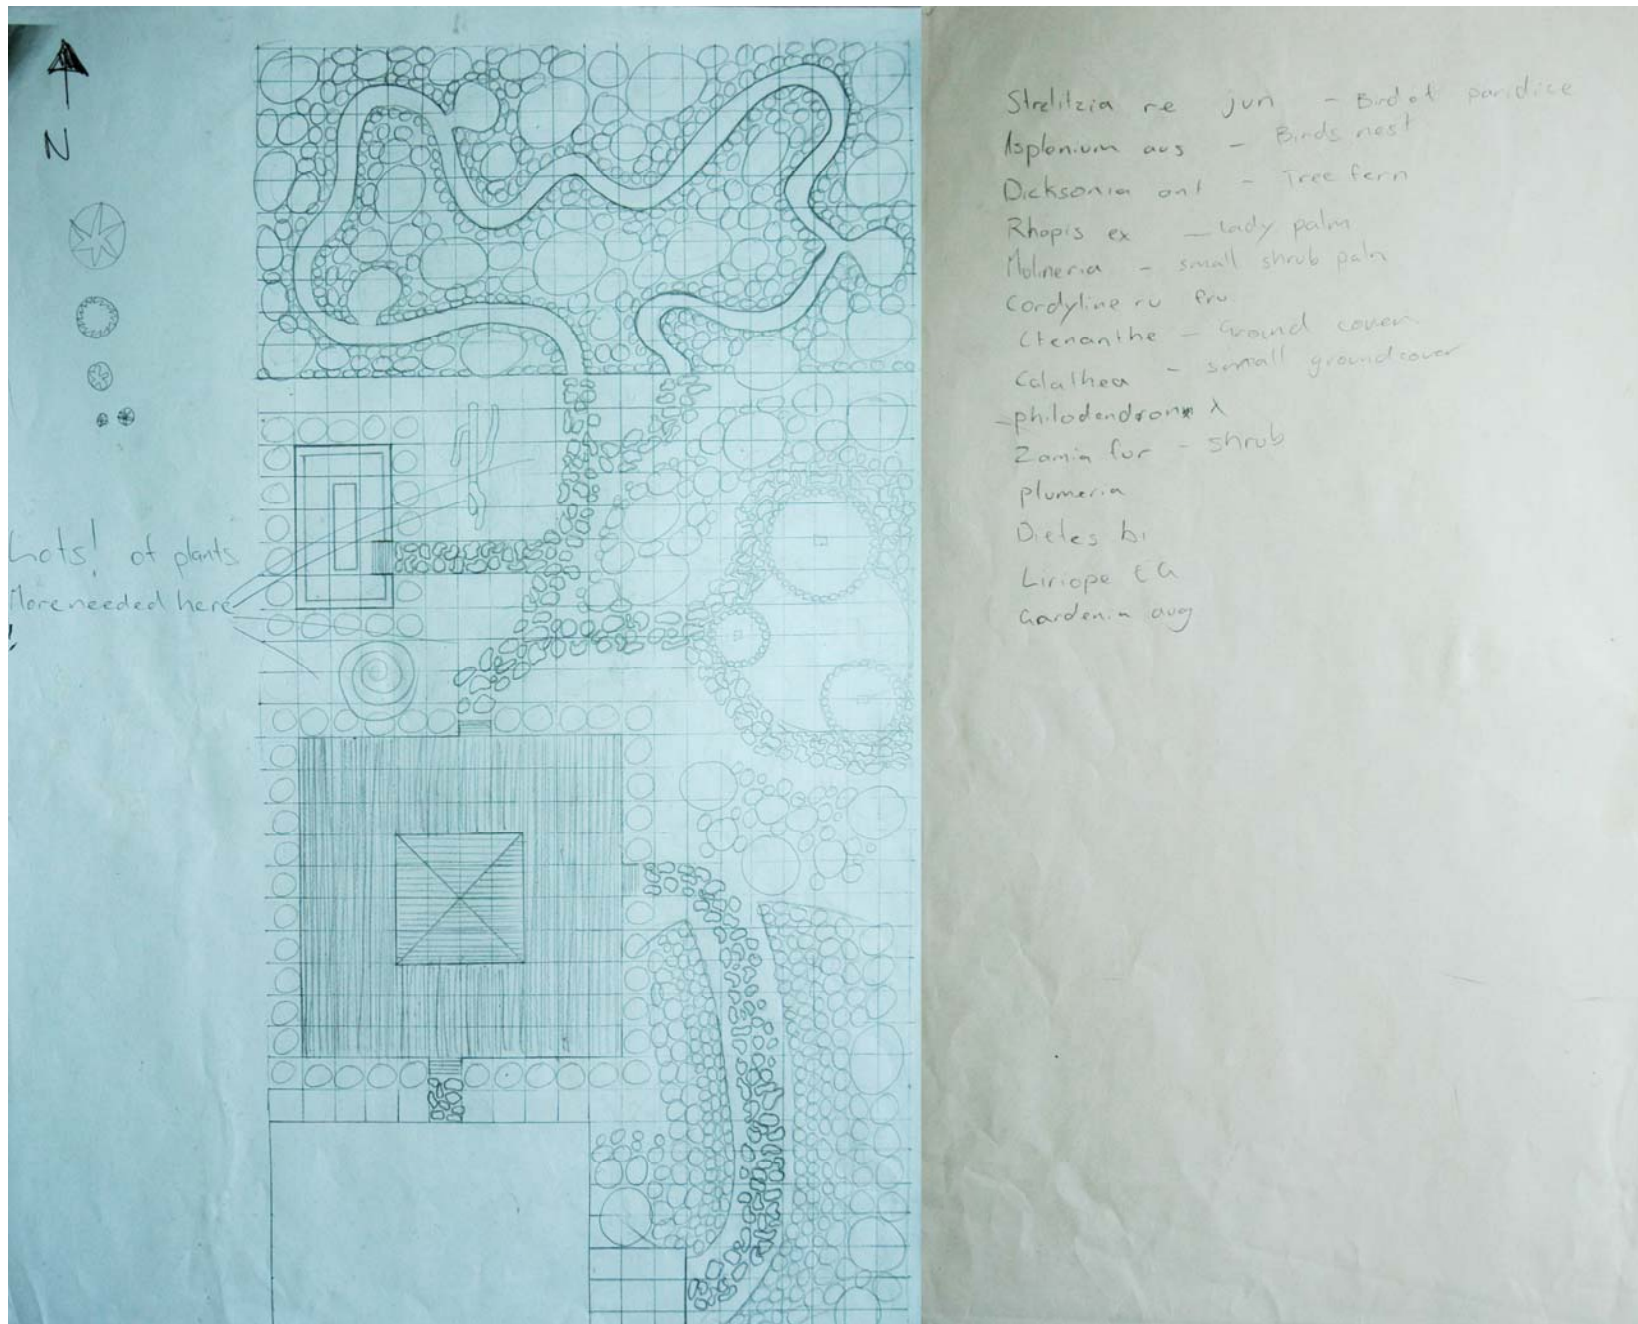 N
Lots! of plants
More needed here
Strelitzia re jun - Bird of paridice
Asplenium aus - Birds nest
Dicksonia ant - Tree fern
Rhapis ex - lady palm
Molineria - small shrub palm
Cordyline ru fru
Ctenanthe - Ground cover
Calathea - small groundcover
- philodendron x
Zamia fur - shrub
plumeria
Dietes bi
Liriope EG
Gardenia aug